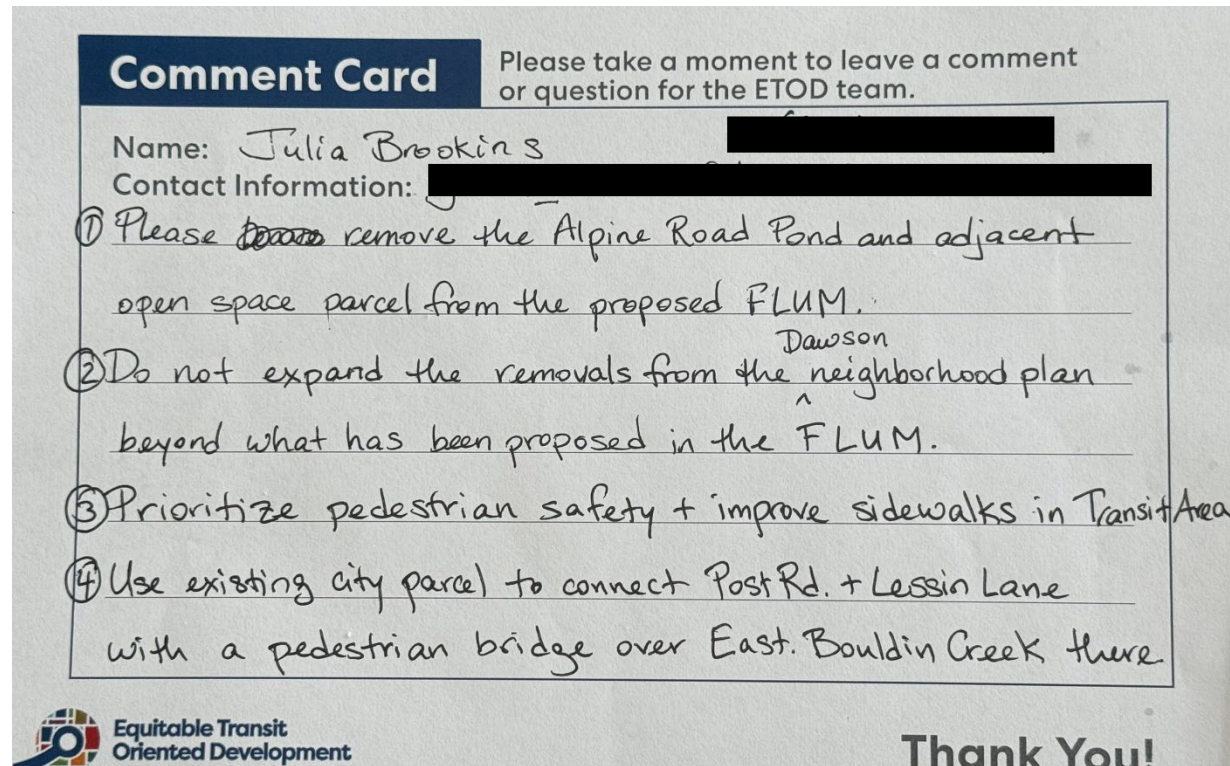 Comment Card
Please take a moment to leave a comment
or question for the ETOD team.
Name: Julia Brookins
Contact Information:
① Please remove the Alpine Road Pond and adjacent
open space parcel from the proposed FLUM.
Dawson
② Do not expand the removals from the ^ neighborhood plan
beyond what has been proposed in the FLUM.
③ Prioritize pedestrian safety + improve sidewalks in Transit Area
④ Use existing city parcel to connect Post Rd. + Lessin Lane
with a pedestrian bridge over East. Bouldin Creek there
Equitable Transit
Oriented Development
Thank You!